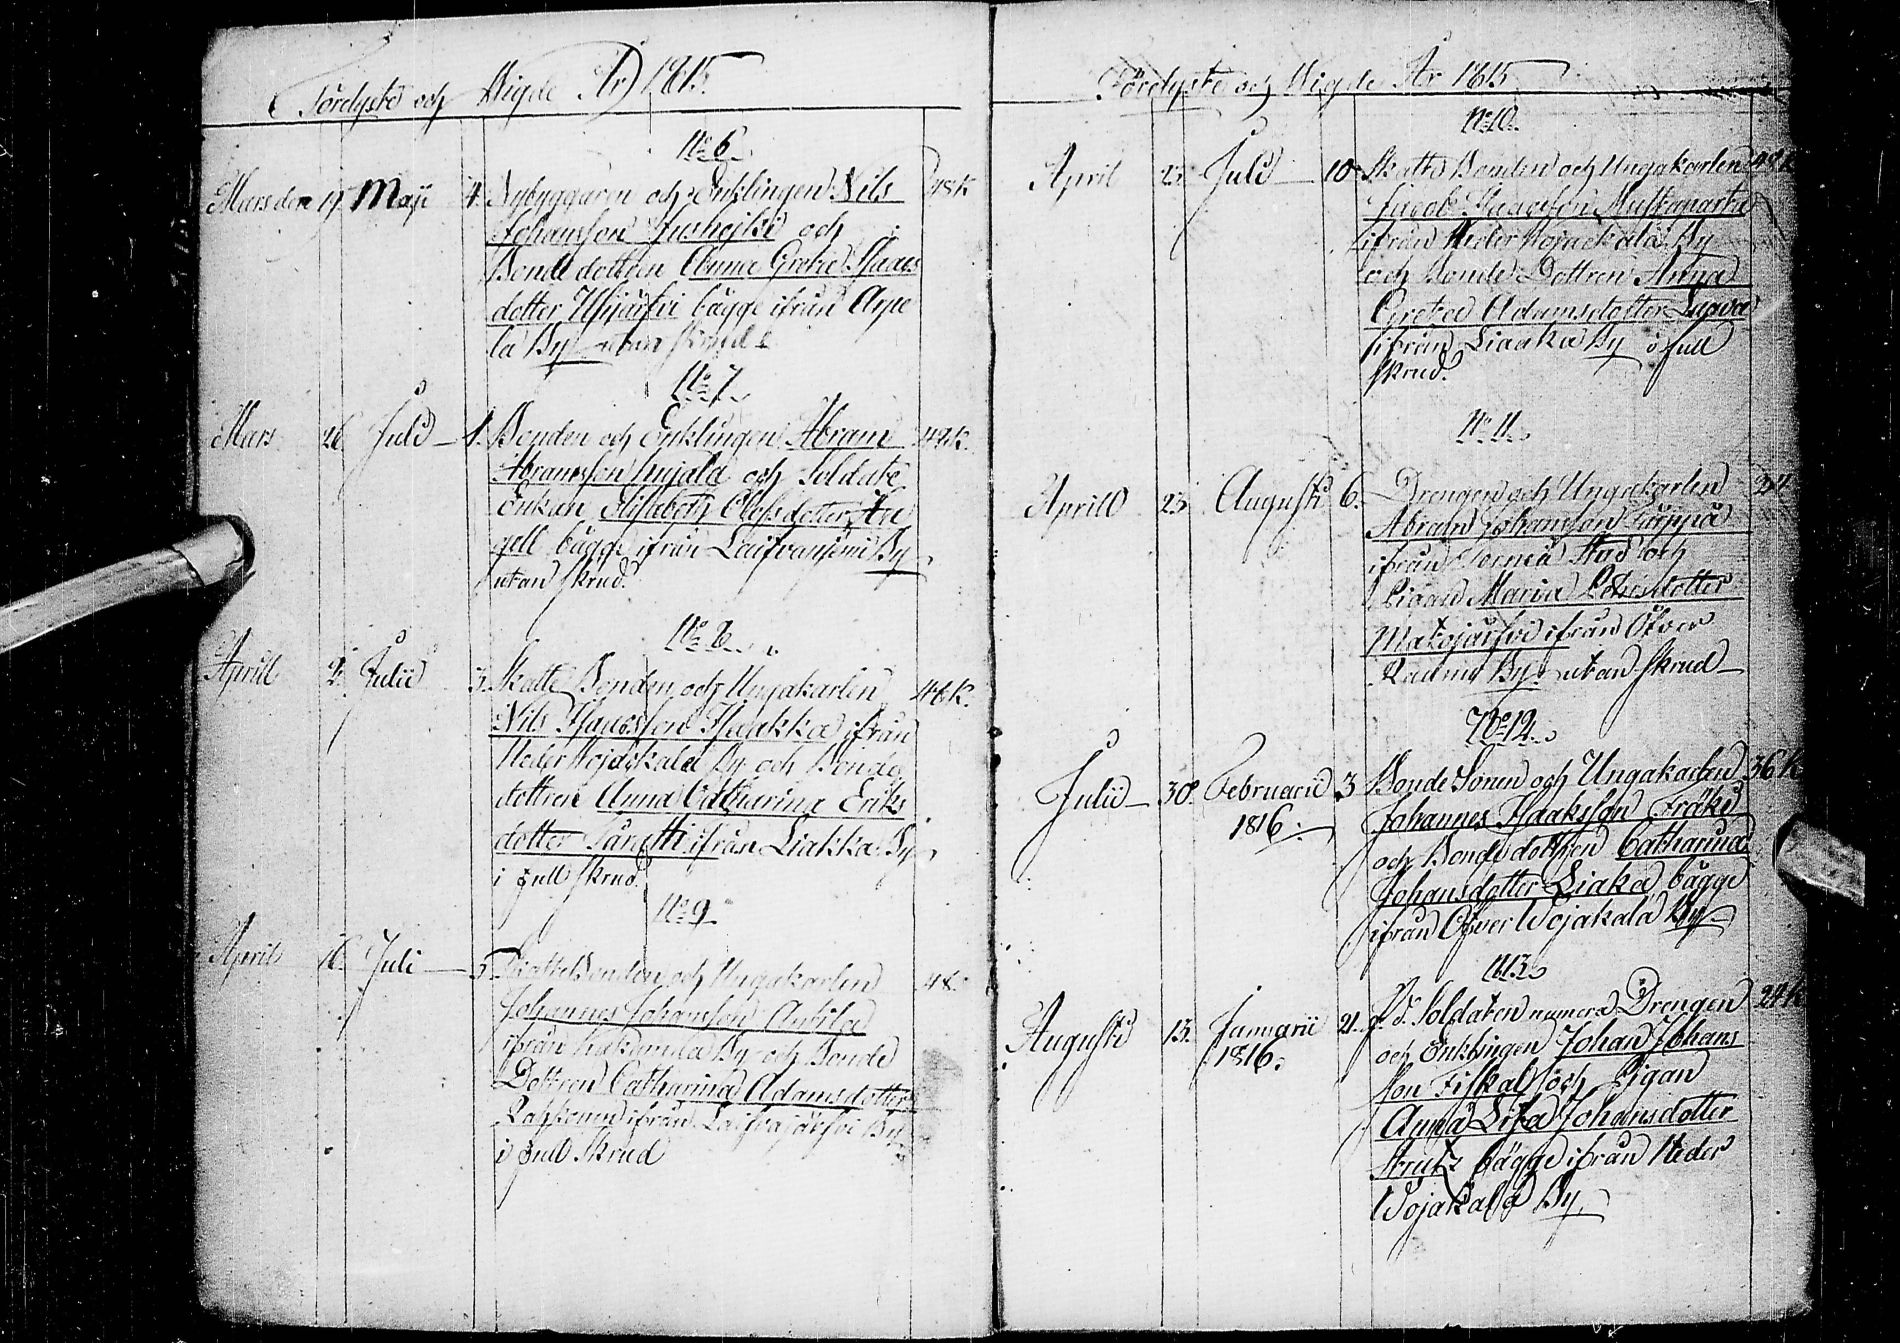 Förelyste och Wigde År 1815.
No 6.
Mars den 19. Maji 4. Nybyggaren och Enklingen Nils 48 K
Johansson Jushejki och
Bonde dottren Anna Greta Isaacs
dotter bägge ifrån Arpe
la By utan skrud
No 7.
Mars 26 Juli 1. Bonden och Enklingen Abram 42 K.
Abramsson och Soldats
Enkan Elisabeth Olofsdotter An
gell bägge ifrån By
utan skrud.
No 8.
Aprill 2. Julii 3. Skatte Bonden och Ungakarlen 48 K.
Nils Isaacsson Haakka ifrån
Neder Wojackala By och Bonde
dottren Anna Catharina Eriks
dotter ifrån Liakka By
i full skrud.
No 9.
April 16. Juli 5. Skatte Bonden och Ungakarlen 48.
Johannes Johansson Anttila
ifrån By och Bonde
Dottren Catharina Adamsdotter
Lapponen ifrån By
i full skrud
Förelyste och Wigde År 1815
No 10.
April 23 Juli 10 Skatte Bonden och Ungakarlen 48 K
Jacob Isaacsson
ifrån Neder Wojackala By
och Bonde Dottren Anna
Greta Adamsdotter
ifrån Liaaka By i full
skrud.
No 11.
Aprill 23 Augusti 6. Drengen och Ungakarlen 24
Abram Johansson
ifrån Stad och
Pigan Maria
ifrån Öfver
By utan skrud
No 12.
Julii 30. Februarii 3 Bonde Sonen och Ungakarlen 36 K
1816. Johannes Isaksson Fräki
och Bonde dottren Catharina
Johansdotter Liaka bägge
ifrån Öfver Wojakala By
N 13.
Augusti 13. Januarii 21. f. d. Soldaten numera Drengen 24 K
1816. och Enklingen Johan Johans
son Fiskal och Pigan
Anna Lisa Johansdotter
Strutz bägge ifrån Neder
Wojakala By